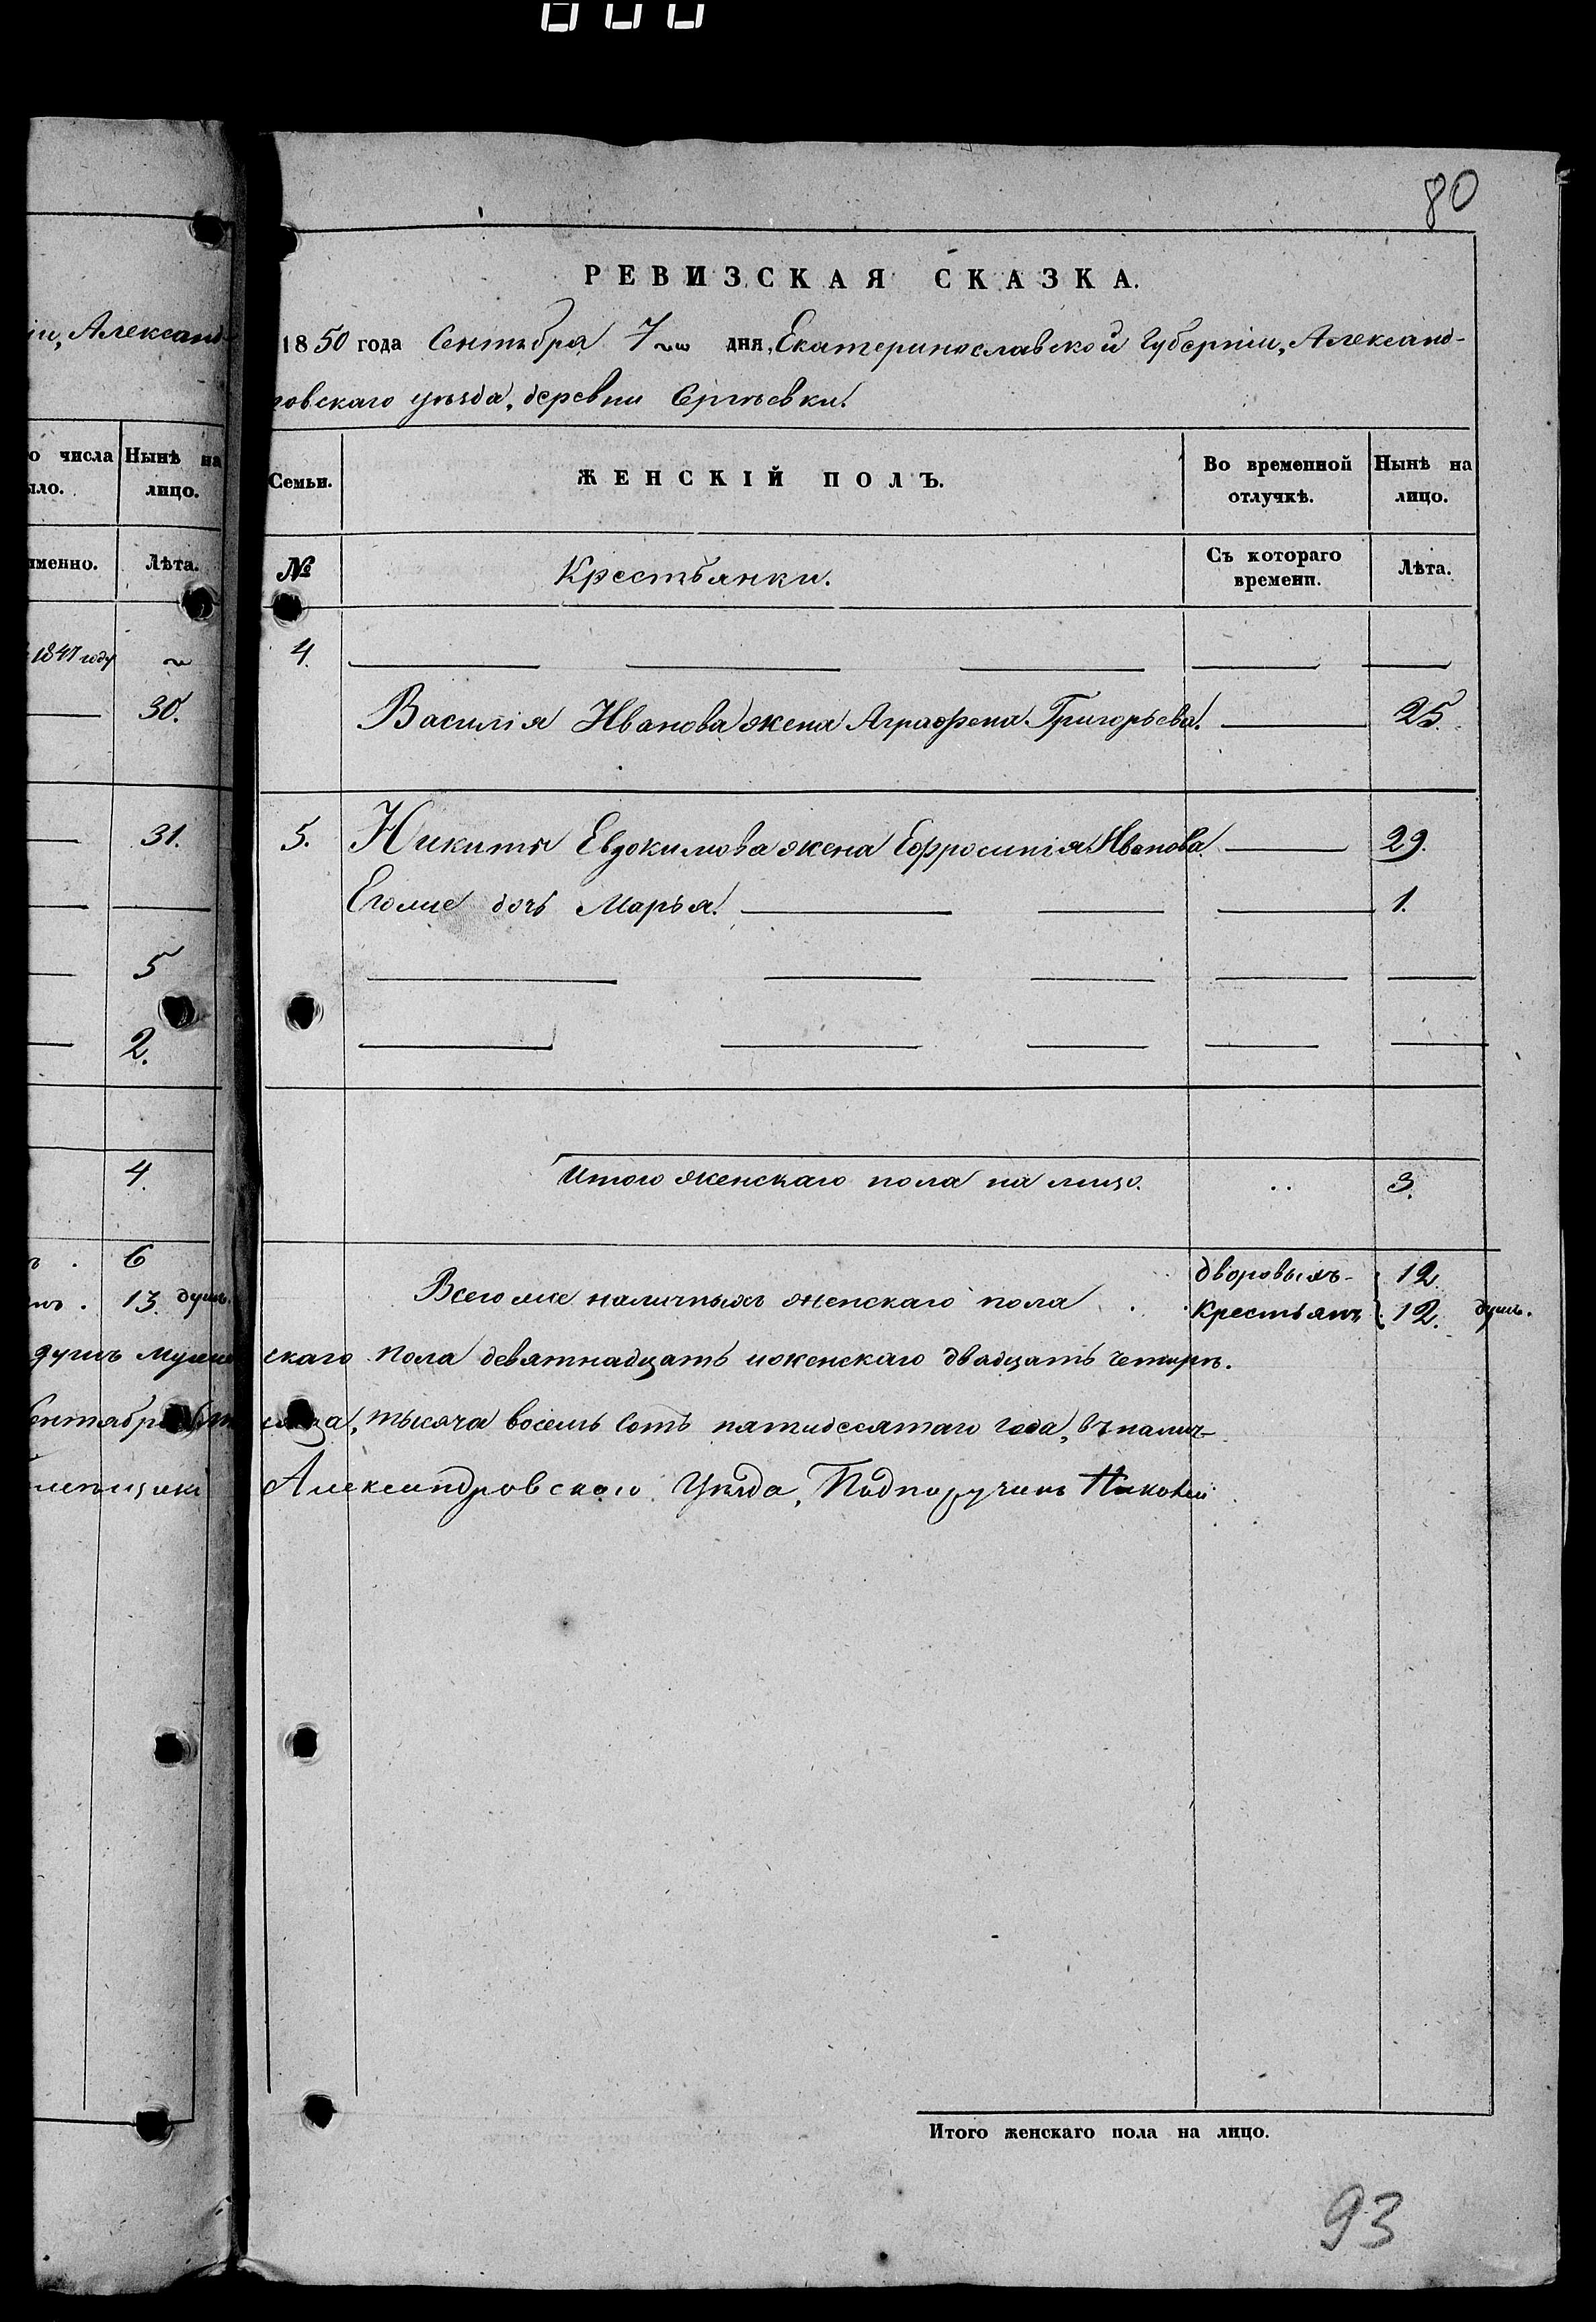 80
РЕВИЗСКАЯ СКАЗКА.
1850 года Сентября 7го дня, Екатеринославской Губерніи, Александ-
ровскаго уѣзда, деревни Сергѣевки.
Семьи. ЖЕНСКІЙ ПОЛЪ. Во временной отлучкѣ. Нынѣ на лицо.
№ Крестьянки. Съ котораго времени. Лѣта.
4.
Василія Иванова жена Аграфена Григорьева. 25.
5. Никиты Евдокимова жена Ефросинія Иванова. 29.
Егоже дочь Марья. 1.
Итого женскаго пола на лицо. 3.
Всего же наличныхъ женскаго пола дворовыхъ 12.
Крестьянъ 12. душъ.
скаго пола девятнадцать и женскаго двадцать четыре.
сяца, тысяча восемь сотъ пятидесятаго года, въ налич-
Александровского Уѣзда, Подпоручикъ
Итого женскаго пола на лицо.
93
іи, Александ-
о числа Нынѣ на
ыло. лицо.
именно. Лѣта.
1847 году
30.
31.
5
2.
4.
6
13. душъ.
душъ мужес
Сентября